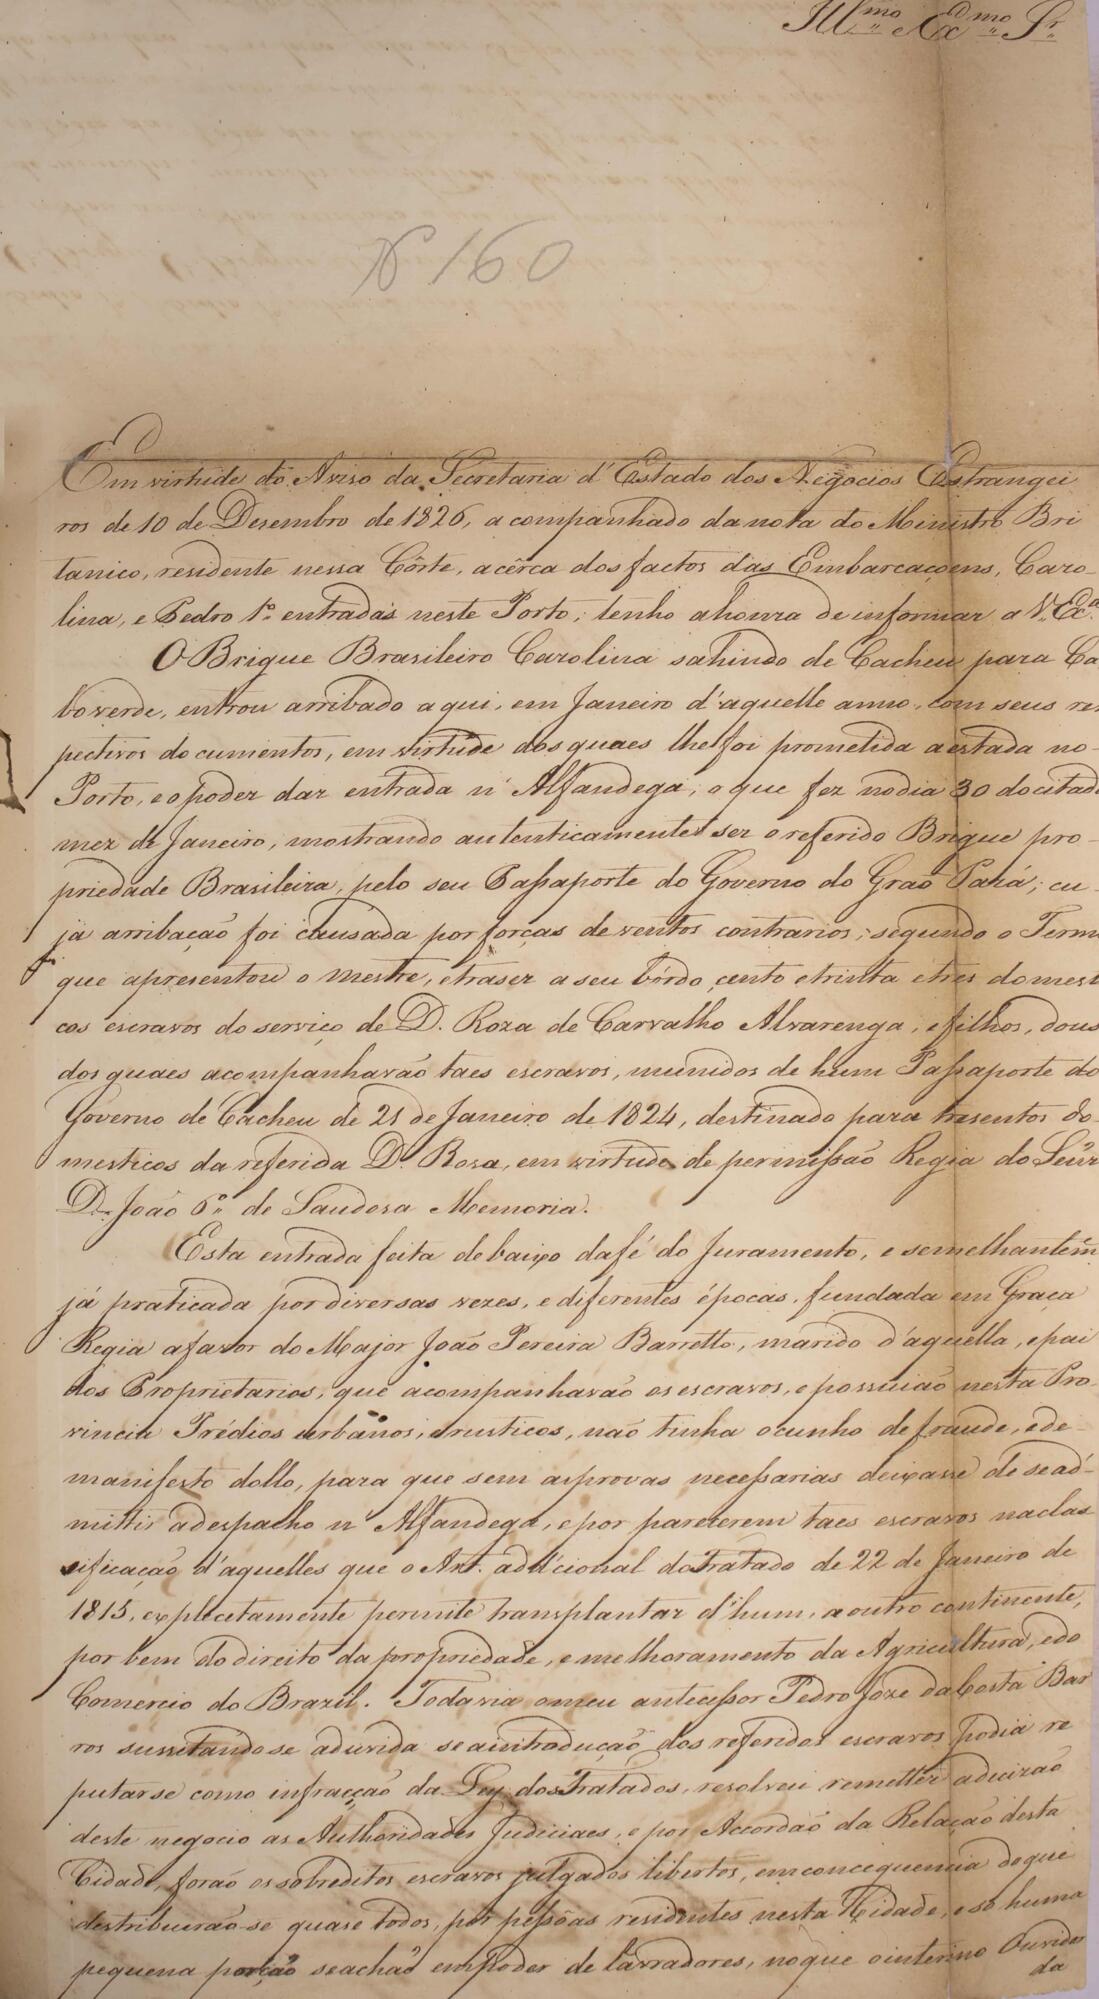 Ill.mo e Ex.mo Sr.
N 160
Em virtude do Aviso da Secretaria d'Estado dos Negocios Estrangei
ros de 10 de Desembro de 1826, acompanhado da nota do Ministro Bri
tanico, residente nessa Côrte, acêrca dos factos das Embarcaçoens, Caro-
lina, e Pedro 1.º entradas neste Porto; tenho a honra de informar a V. Ex.ª
O Brigue Brasileiro Carolina sahindo de Cacheu para Ca
bo verde, entrou arribado aqui, em Janeiro d'aquelle anno, com seus res
pectivos documentos, em virtude dos quaes lhe foi prometida a estada no
Porto, e o poder dar entrada n'Alfandega; o que fez no dia 30 do citad
mez de Janeiro, mostrando autenticamente ser o referido Brigue pro-
priedade Brasileira, pelo seu Passaporte do Governo do Grão Pará; cu-
ja arribação foi causada por forças de ventos contrarios; segundo o Term
que apresentou o mestre, e traser a seu bórdo cento e trinta e tres domest
cos escravos do serviço de D. Roza de Carvalho Alvarenga, e filhos, dous
dos quaes acompanhavão taes escravos, munidos de hum Passaporte do
Governo de Cacheu de 21 de Janeiro de 1824, destinado para tresentos do-
mesticos da referida D. Rosa, em virtude de permissão Regia do Senr
D. João 6.º de Saudosa Memoria.
Esta entrada feita debaixo da fé do Juramento, e semelhantem
já praticada por diversas vezes, e diferentes épocas, fundada em Graça
Regia a favor do Major João Pereira Barretto, marido d'aquella, e pai
dos Proprietarios, que acompanhavão os escravos, e possuião nesta Pro-
vincia Prédios urbanos, e rusticos, não tinha o cunho de fraude, e de
manifesto dollo, para que sem as provas necessarias deixasse de se ad-
mittir a despacho n'Alfandega, e por parecerem taes escravos na clas
sificação d'aquelles que o Art. addicional do Tratado de 22 de Janeiro de
1815, explecetamente permite transplantar d'hum, a outro continente,
por bem do direito da propriedade, e melhoramento da Agricultura, e do
Comercio do Brazil. Todavia o meu antecessor Pedro Joze da Costa Bar
ros sussitando-se a duvida se a introdução dos referidos escravos podia re
putarse como infracção da Ley dos Tratados, resolveu remetter a decizão
deste negocio as Authoridades Judiciaes, e por Accordão da Relação desta
Cidade, forão os sobreditos escravos julgados libertos, em concequencia do que
destribuirão-se quase todos, por pessôas residentes nesta Cidade, e só huma
pequena porção se achão em poder de lavradores, no que o interino Ouvidor
da